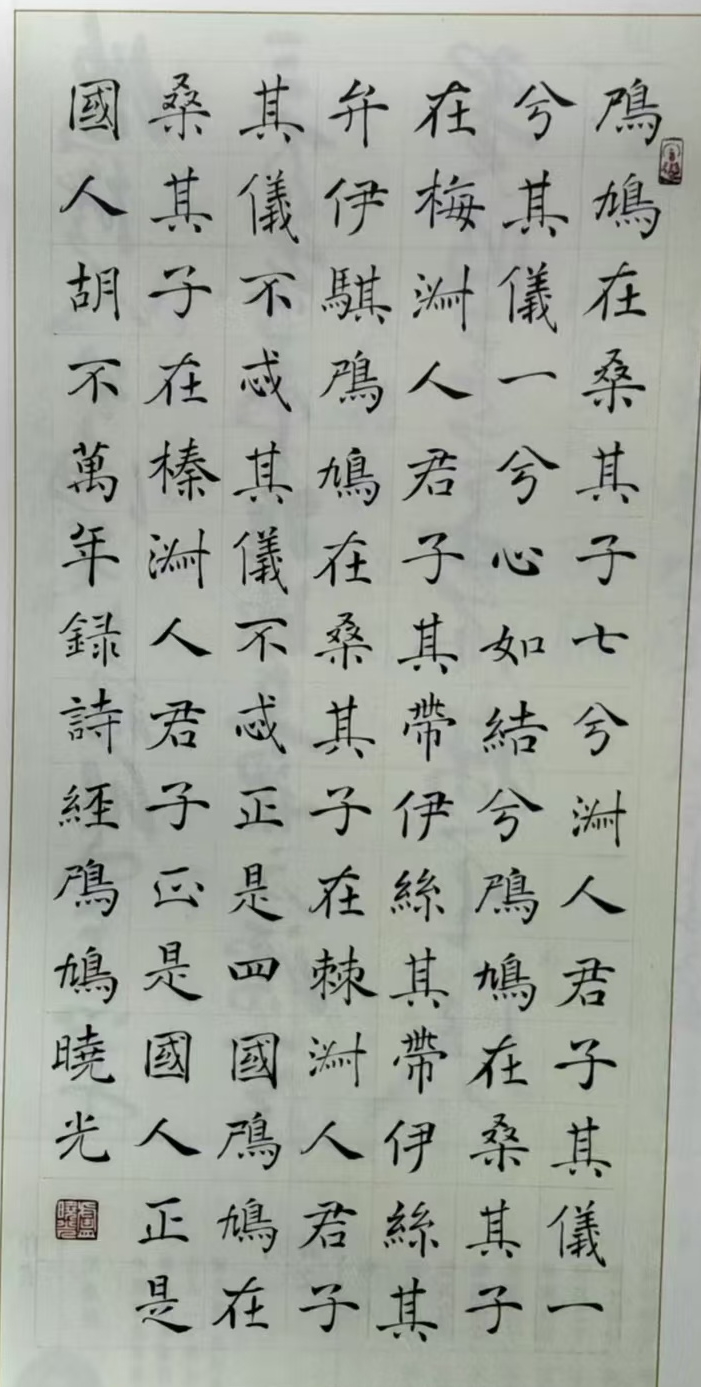 鳲鳩在桑其子七兮淑人君子其儀一
兮其儀一兮心如結兮鳲鳩在桑其子
在梅淑人君子其帶伊絲其帶伊絲其
弁伊騏鳲鳩在桑其子在棘淑人君子
其儀不忒其儀不忒正是四國鳲鳩在
桑其子在榛淑人君子正是國人正是
國人胡不萬年録詩經鳲鳩曉光